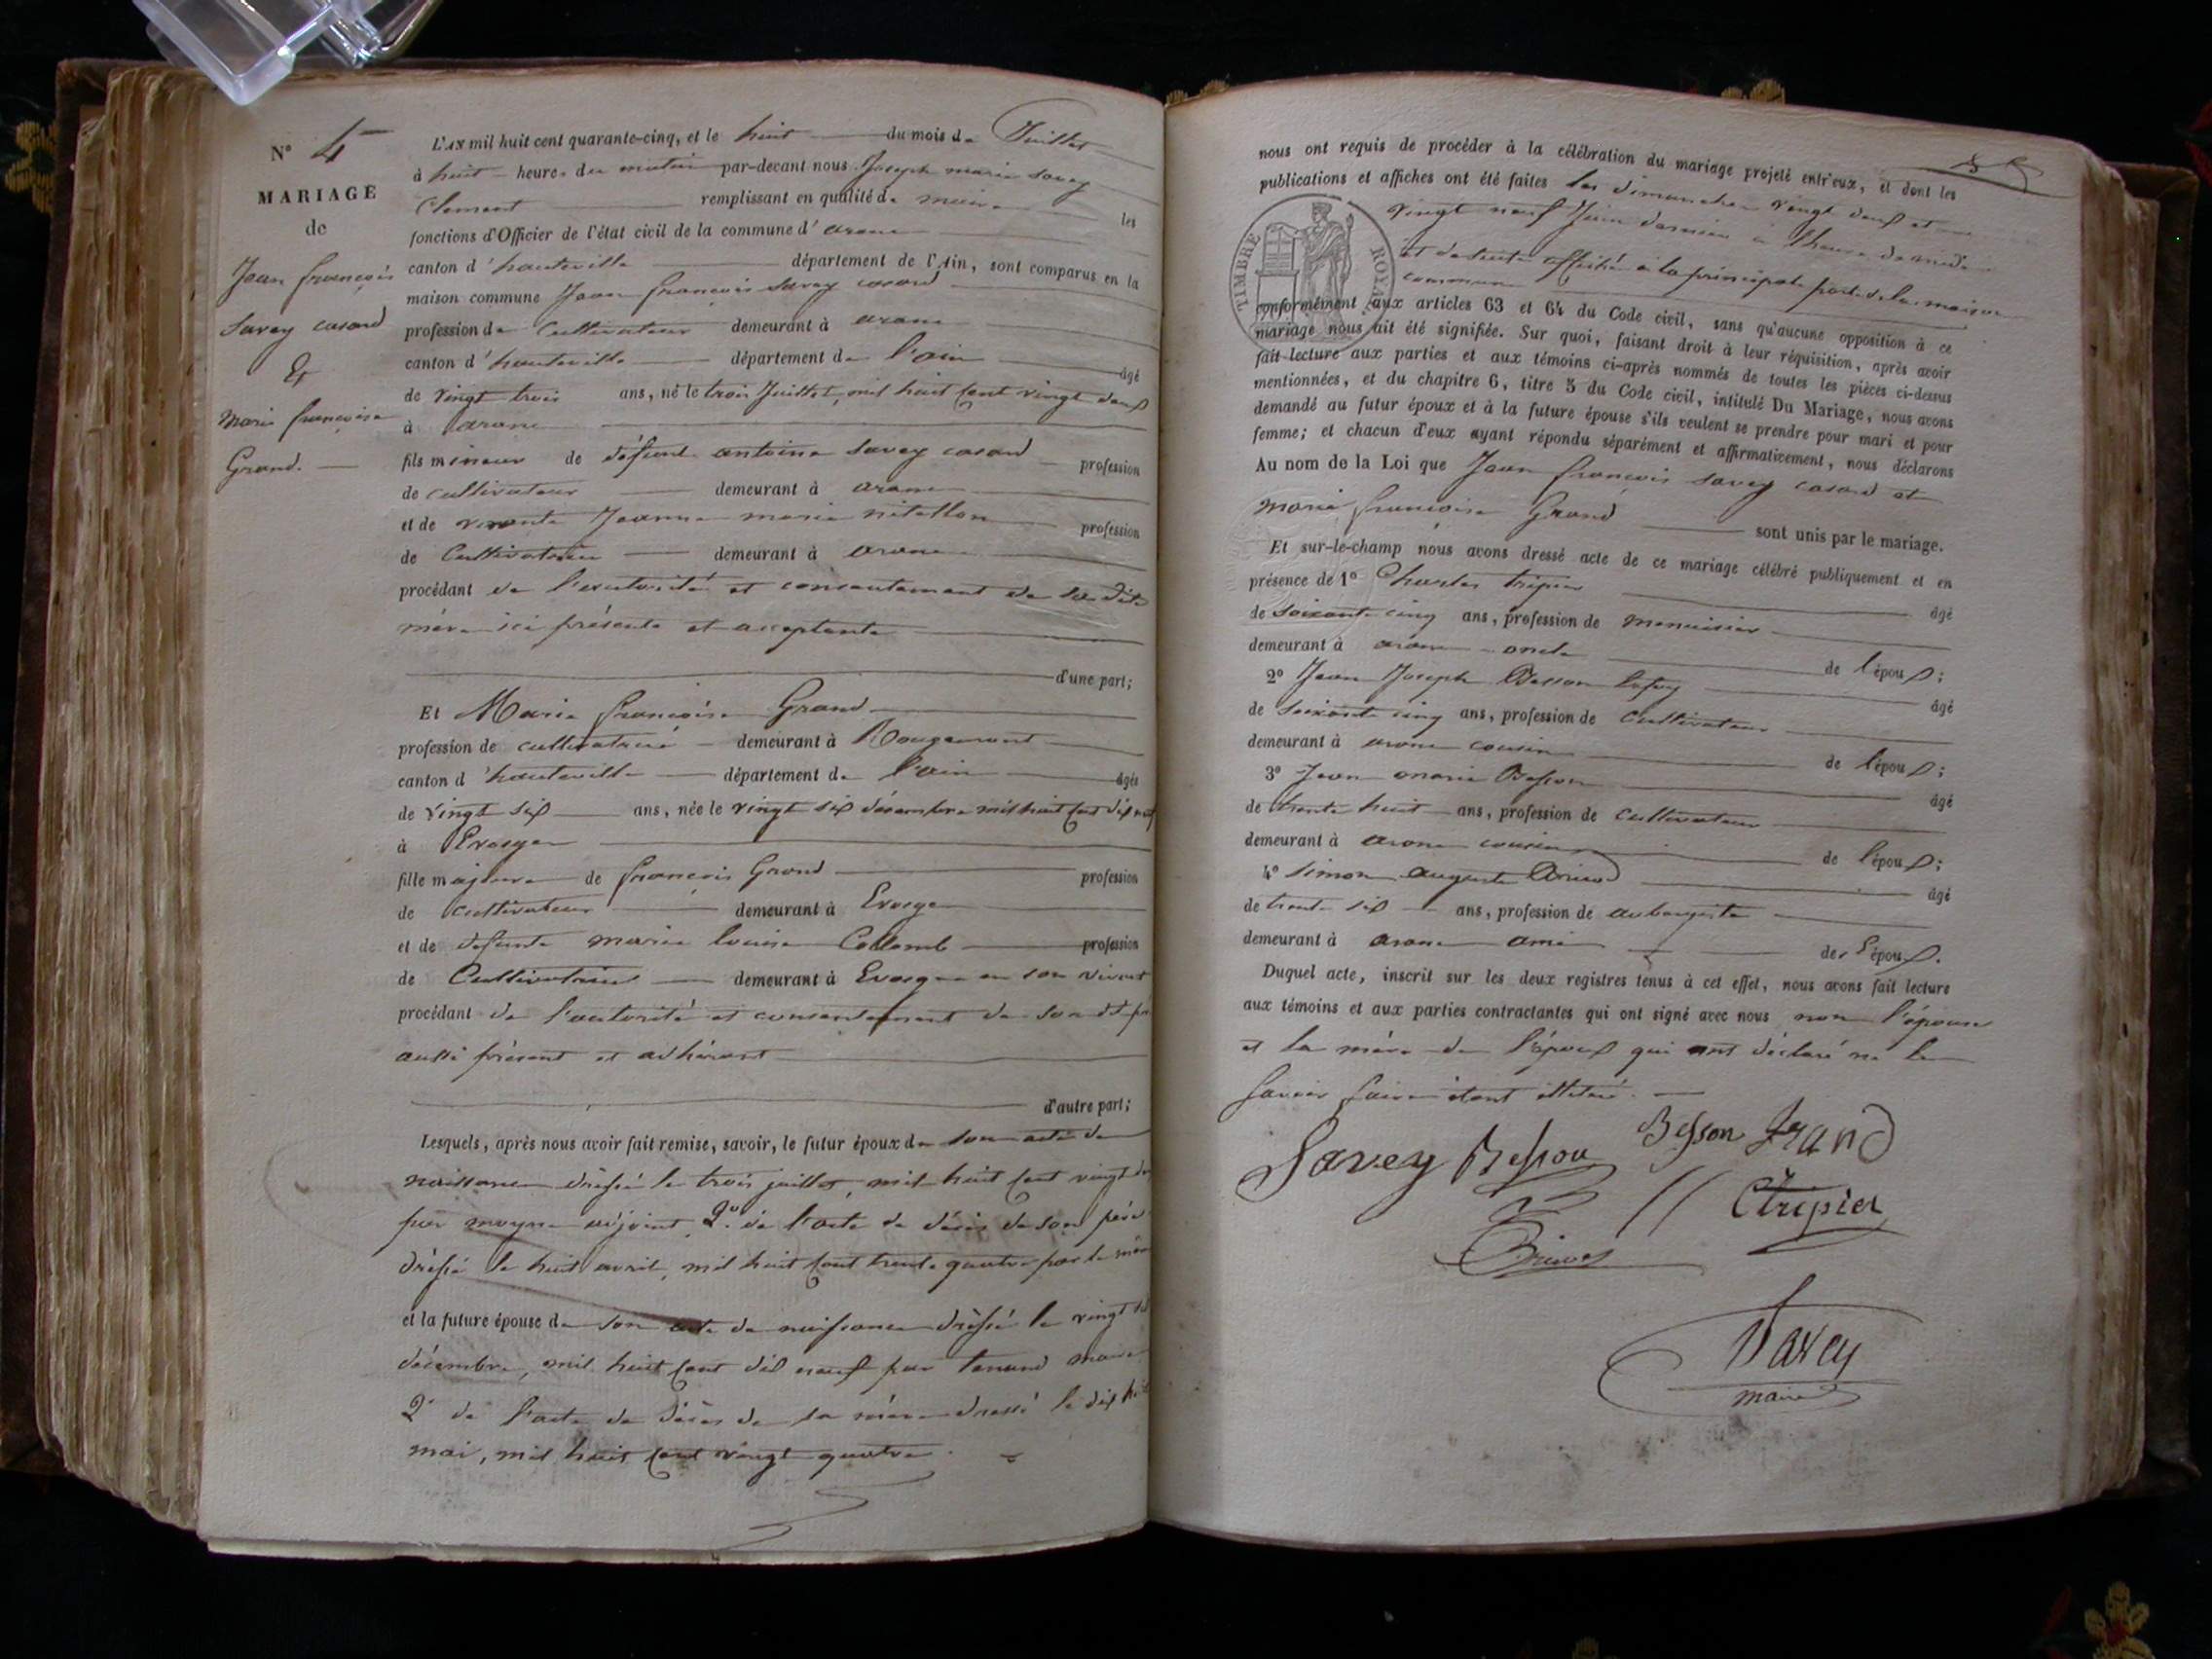 N° 4
MARIAGE
de
Jean françois
Savey casard
&
Marie françoise
Grand.
L'AN mil huit cent quarante-cinq, et le huit du mois de Juillet
à huit heures du matin par-devant nous Joseph marie Savey
Clement remplissant en qualité de maire les
fonctions d'Officier de l'état civil de la commune d'arane
canton d'hauteville département de l'Ain, sont comparus en la
maison commune Jean françois Savey casard
profession de Cultivateur demeurant à arane
canton d'hauteville département de l'ain âgé
de vingt trois ans, né le trois Juillet, mil huit cent vingt deux
à arane
fils mineur de défunt antoine Savey casard profession
de cultivateur demeurant à arane
et de vivante Jeanne marie nitellon profession
de Cultivatrice demeurant à arane
procédant de l'autorité et consentement de sa dite
mère ici présente et acceptante
d'une part;
Et Marie françoise Grand
profession de cultivatrice demeurant à Rougemont
canton d'hauteville département de l'ain âgée
de vingt six ans, née le vingt six décembre mil huit cent dix neuf
à Evosge
fille majeure de françois Grand profession
de cultivateur demeurant à Evosge
et de defunte marie louise Collomb profession
de Cultivatrice demeurant à Evosge en son vivant
procédant de l'autorité et consentement de son dt père
aussi présent et adhérant
d'autre part;
Lesquels, après nous avoir fait remise, savoir, le futur époux de son acte de
naissance dréssé le trois juillet, mil huit cent vingt deux
par moyne adjoint, 2° de l'acte de décès de son père
dréssé le huit avril, mil huit cent trente quatre par le même
et la future épouse de son acte de naissance dréssé le vingt six
décembre, mil huit cent dix neuf par tenand maire
2° de l'acte de décès de sa mère dressé le dix huit
mai, mil huit cent vingt quatre.
nous ont requis de procéder à la célébration du mariage projeté entr'eux, et dont les
publications et affiches ont été faites les dimanches vingt deux et
vingt neuf Juin dernier à l'heure de midi
et de suite affichés à la principale porte de la maison
commune
TIMBRE ROYAL
conformément aux articles 63 et 64 du Code civil, sans qu'aucune opposition à ce
mariage nous ait été signifiée. Sur quoi, faisant droit à leur réquisition, après avoir
fait lecture aux parties et aux témoins ci-après nommés de toutes les pièces ci-dessus
mentionnées, et du chapitre 6, titre 5 du Code civil, intitulé Du Mariage, nous avons
demandé au futur époux et à la future épouse s'ils veulent se prendre pour mari et pour
femme; et chacun d'eux ayant répondu séparément et affirmativement, nous déclarons
Au nom de la Loi que Jean françois Savey casard et
marie françoise Grand sont unis par le mariage.
Et sur-le-champ nous avons dressé acte de ce mariage célébré publiquement et en
présence de 1° Charles tripier âgé
de soixante cinq ans, profession de menuisier
demeurant à arane oncle de l'époux;
2° Jean Joseph Besson âgé
de soixante cinq ans, profession de Cultivateur
demeurant à arane cousin de l'époux;
3° Jean marie Besson âgé
de trente huit ans, profession de Cultivateur
demeurant à arane cousin de l'époux;
4° Simon auguste âgé
de trente six ans, profession de aubergiste
demeurant à arane ami des époux.
Duquel acte, inscrit sur les deux registres tenus à cet effet, nous avons fait lecture
aux témoins et aux parties contractantes qui ont signé avec nous non l'épouse
et la mère de l'époux qui ont déclaré ne le
savoir faire étant illitéré.
Savey Besson Besson Grand
Ctripier
Savey
maire